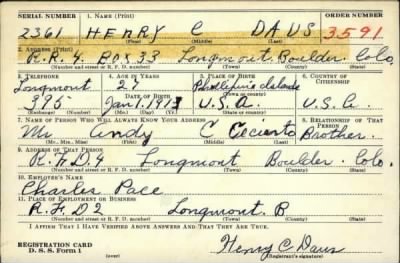 SERIAL NUMBER 1. NAME (Print) ORDER NUMBER
2361 HENRY C DAUS 3591
(First) (Middle) (Last)
2. ADDRESS (Print)
R.R. 4. Box 33 Longmont. Boulder. Colo.
(Number and street or R. F. D. number) (Town) (County) (State)
3. TELEPHONE 4. AGE IN YEARS 5. PLACE OF BIRTH 6. COUNTRY OF CITIZENSHIP
Longmont
(Exchange) DATE OF BIRTH (Town or county)
395 Jan. 1. 1913 U.S.A. U.S.A.
(Number) (Mo.) (Day) (Yr.) (State or country)
7. NAME OF PERSON WHO WILL ALWAYS KNOW YOUR ADDRESS 8. RELATIONSHIP OF THAT PERSON
Mr Andy C Brother.
(Mr., Mrs., Miss) (First) (Middle) (Last)
9. ADDRESS OF THAT PERSON
R.F.D.4 Longmont Boulder. Colo.
(Number and street or R. F. D. number) (Town) (County) (State)
10. EMPLOYER'S NAME
Charles Pace
11. PLACE OF EMPLOYMENT OR BUSINESS
R.F.D2 Longmont. B
(Number and street or R. F. D. number) (Town) (County) (State)
I AFFIRM THAT I HAVE VERIFIED ABOVE ANSWERS AND THAT THEY ARE TRUE.
REGISTRATION CARD
D. S. S. Form 1 (over)
Henry C Daus
(Registrant's signature)